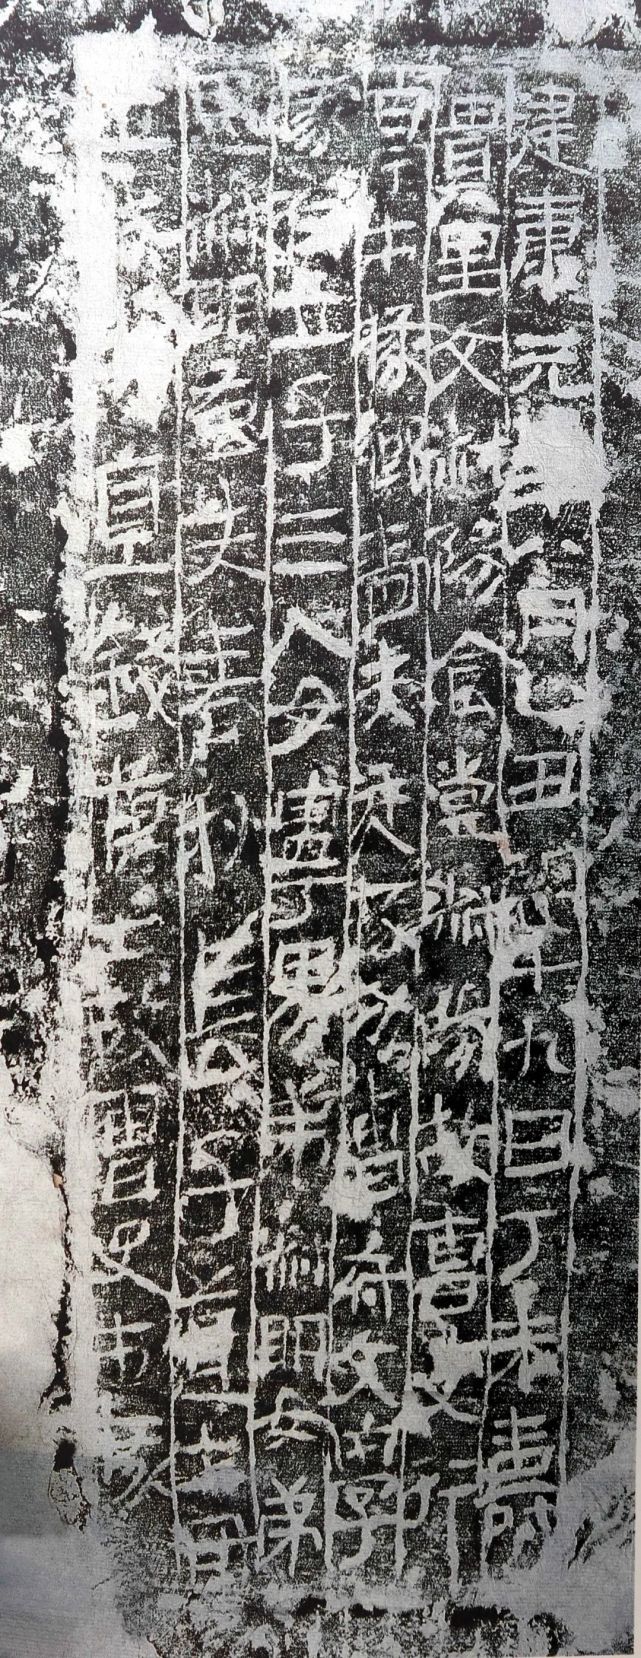 建康元年八月乙丑朔十九日丁未壽
貴里文叔陽食堂叔陽故曹史行
亭市掾鄉嗇夫廷掾功曹府文學
掾有立子三人女寧男弟叔明女弟
思叔明蚤失春秋長子道士
直錢萬七故曹史市掾